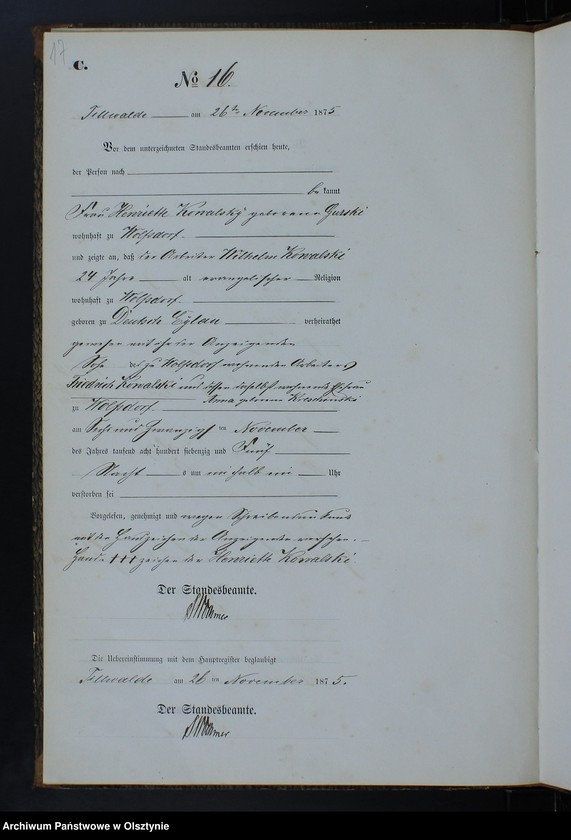 17
C.
No 16.
am 26ten November 1875
Vor dem unterzeichneten Standesbeamten erschien heute,
der Person nach
be kannt
Frau Henriette Kowalsky geborene Gurski
wohnhaft zu Wolfsdorf
und zeigte an, daß der Arbeiter Wilhelm Kowalski
24 Jahre alt evangelischer Religion
wohnhaft zu Wolfsdorf
geboren zu Deutsch Eylau verheirathet
gewesen mit ihr der Anzeigenden
Sohn des zu Wolfsdorf wohnenden Arbeiters
Friedrich Kowalski und dessen daselbst wohnende Ehefrau
Anna geborene
zu Wolfsdorf
am Sechs und Zwanzigsten November
des Jahres tausend acht hundert siebenzig und Fünf
Nacht s um ein halb ein Uhr
verstorben sei
Vorgelesen, genehmigt und wegen
mit den Handzeichen der Anzeigenden versehen.
Hand +++ zeichen der Henriette Kowalski
Der Standesbeamte.
Die Uebereinstimmung mit dem Hauptregister beglaubigt
am 26 ten November 1875.
Der Standesbeamte.
Archiwum Państwowe w Olsztynie